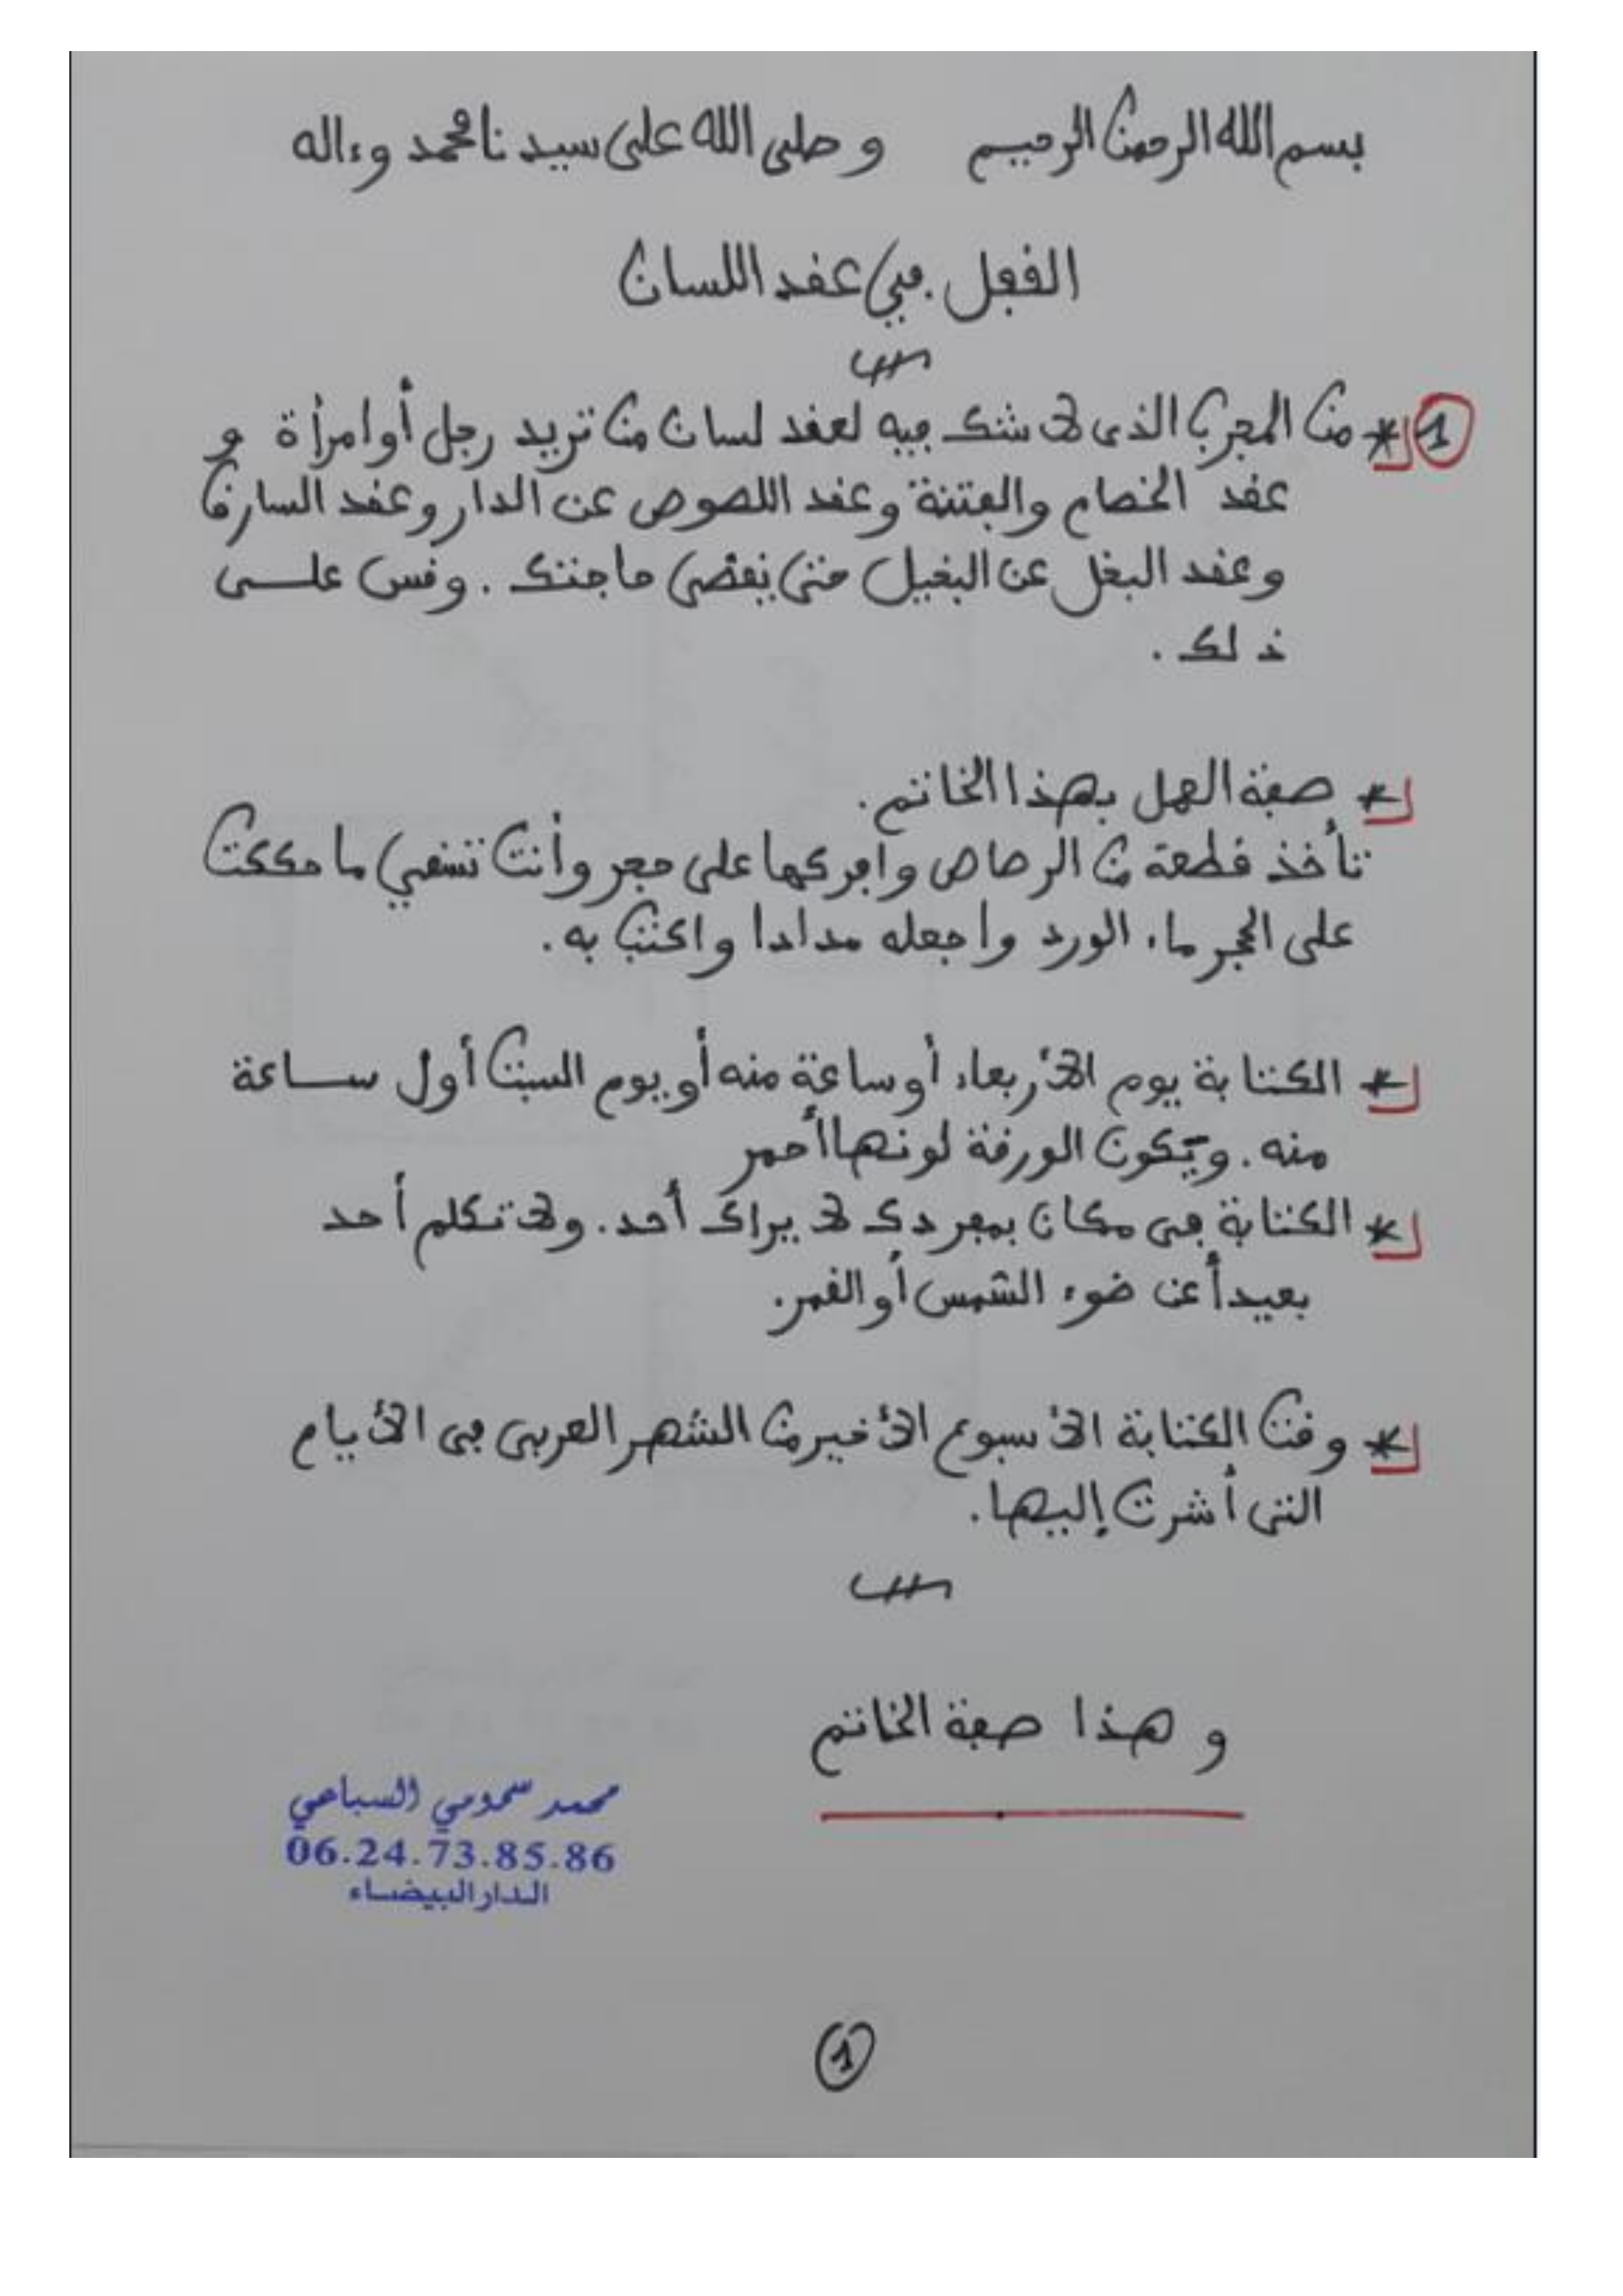 بسم الله الرحمن الرحيم وصلى الله على سيدنا محمد وءاله
القبول في عقد اللسان
1 * من المجرب الذي لا شك فيه لعقد لسان من تريد رجل أو امرأة و
عقد الخصام والفتنة وعقد اللصوص عن الدار وعقد السارق
وعقد البخل عن البخيل حتى يقضي حاجتك . وقس على
ذلك .
* صفة العمل بهذا الخاتم .
تأخذ قطعة من الرصاص وافركها على حجر وأنت تسقي ما حككت
على الحجر ماء الورد واجعله مدادا واكتب به .
* الكتابة يوم الأربعاء أو ساعة منه أو يوم السبت أول ساعة
منه . وتكون الورقة لونها أحمر
* الكتابة في مكان بمفردك لا يراك أحد . ولا تكلم أحد
بعيدأ عن ضوء الشمس أو القمر .
* وقت الكتابة الأسبوع الأخير من الشهر العربي في الأيام
التي أشرت إليها .
وهذا صفة الخاتم
محمد سحومي السباعي
06.24.73.85.86
الدار البيضاء
1